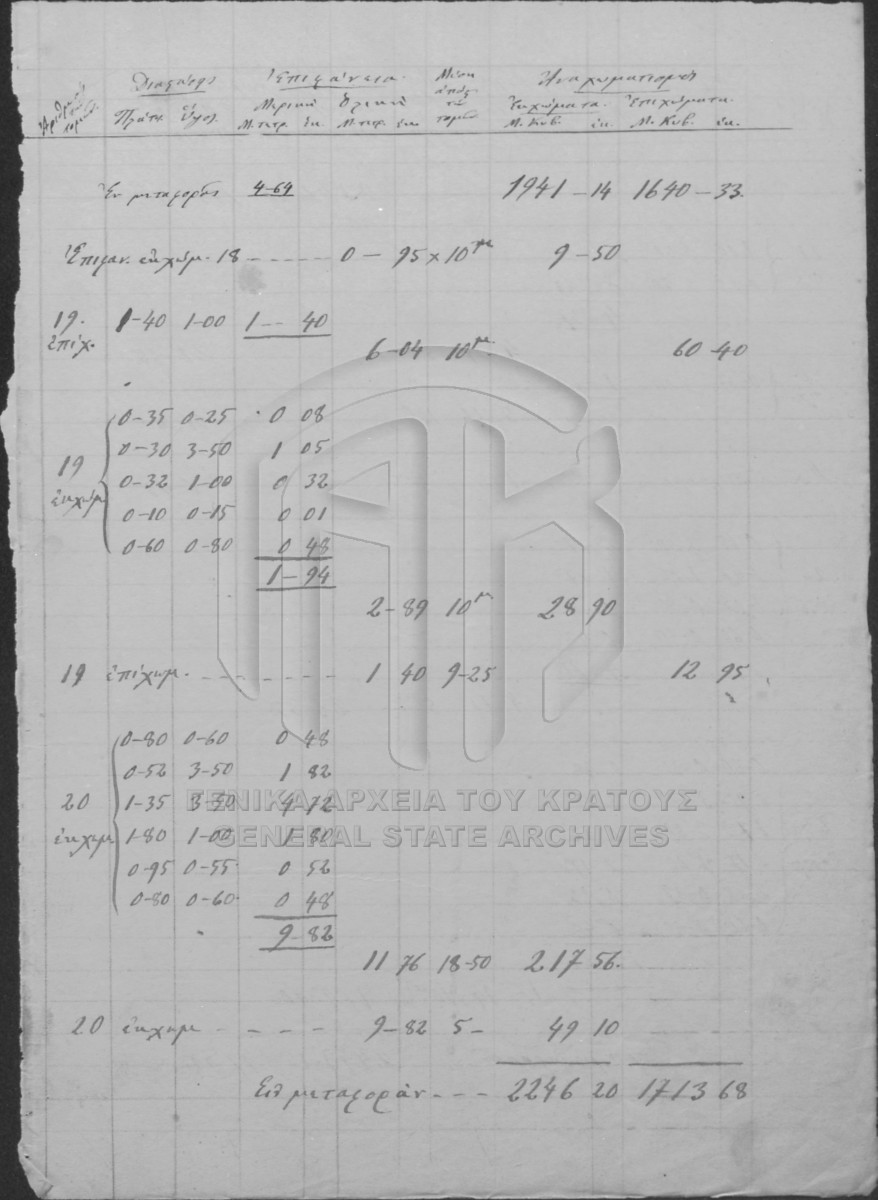 Διαφάσεις Ἐπιφάνεια Μέση Ἀναχωματισμοί
Ἀριθμὸς τομῶν Πλάτη Ὕψος Μερικὴ Ὁλικὴ ἀπόσ. τῶν τομῶν Ἐκχώματα Ἐπιχώματα
Μ.τετρ. ἑκ. Μ.τετρ. ἑκ. Μ. Κυβ. ἑκ. Μ. Κυβ. ἑκ.
Ἐκ μεταφορᾶς 4-64 1941 - 14 1640 - 33
Ἐπιφαν. ἐκχώμ. 18 - - - - - 0 - 95 × 10 μ 9 - 50
19. 1-40 1-00 1 -- 40
ἐπίχ.
6 - 04 10 μ 60 40
0-35 0-25 0 08
0-30 3-50 1 05
19 0-32 1-00 0 32
ἐκχώμ 0-10 0-15 0 01
0-60 0-80 0 48
1 - 94
2 - 89 10 μ 28 90
19 ἐπίχωμ. - - - - - - 1 40 9-25 12 95
0-80 0-60 0 48
0-52 3-50 1 82
20 1-35 3-50 4 72
ἐκχωμ 1-80 1-00 1 80
0-95 0-55 0 52
0-80 0-60 0 48
9 - 82
11 76 18-50 217 56.
20 ἐκχωμ - - - - 9-82 5- 49 10
Εἰς μεταφορὰν - - - 2246 20 1713 68
ΓΕΝΙΚΑ ΑΡΧΕΙΑ ΤΟΥ ΚΡΑΤΟΥΣ
GENERAL STATE ARCHIVES